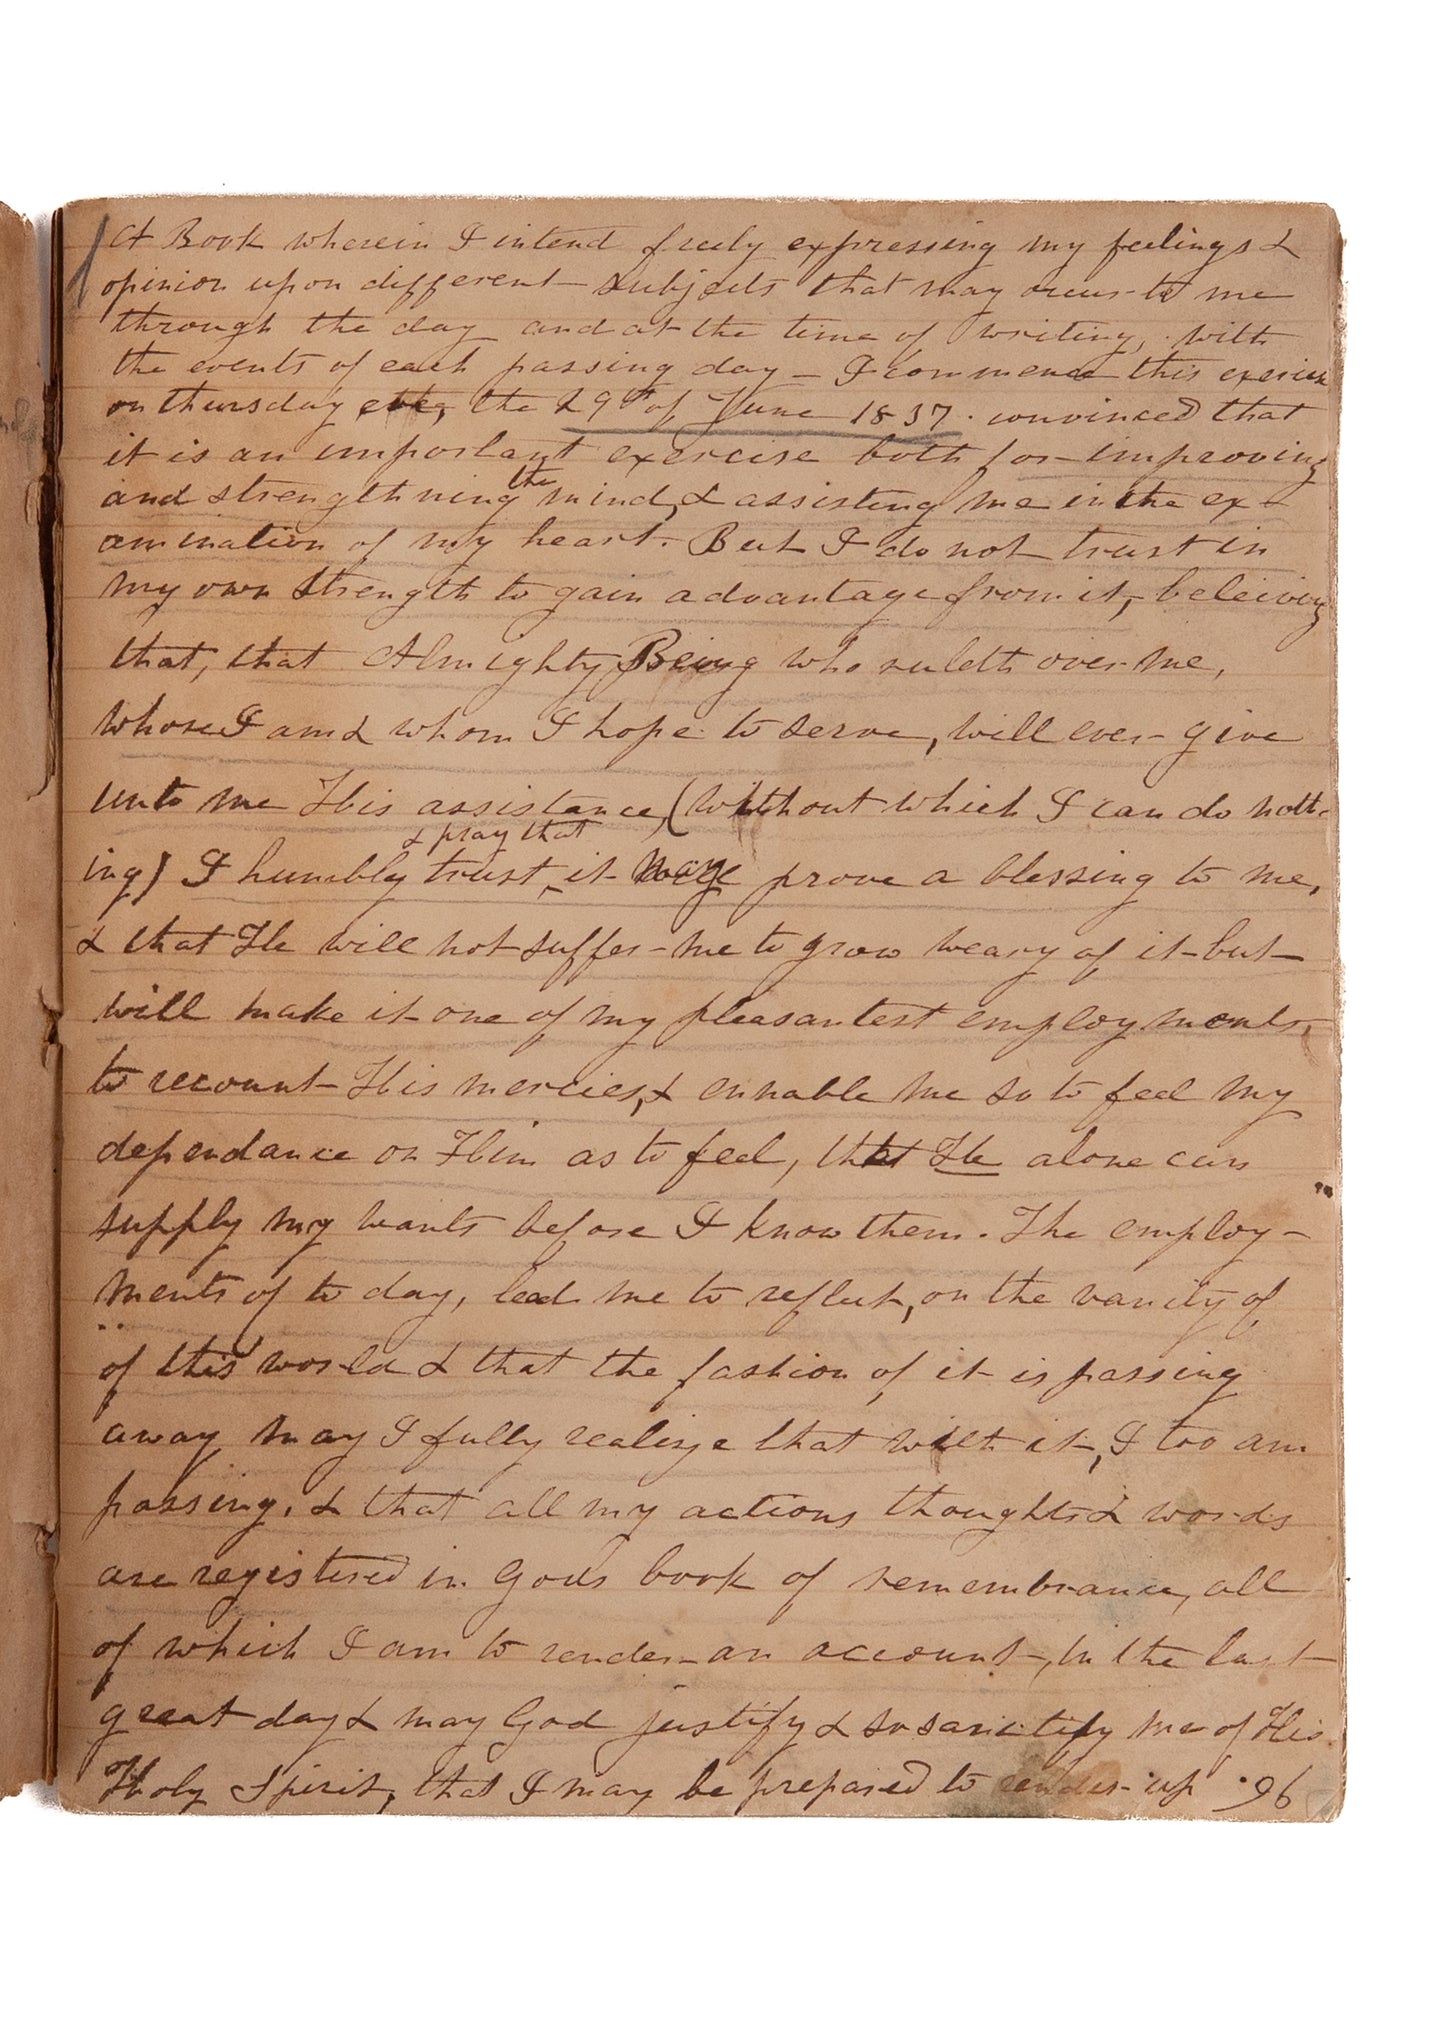 A Book wherein I intend freely expressing my feelings &
opinion upon different subjects that may occur to me
through the day and at the time of writing, with
the events of each passing day – I commence this exercise
on thursday the 29th of June 1837. convinced that
it is an important exercise both for improving
and strengthning the mind, & assisting me in the ex-
amination of my heart. But I do not trust in
my own strength to gain advantage from it, beleiving
that, that Almighty Being who ruleth over me,
whose I am & whom I hope to serve, will ever give
unto me His assistance, (without which I can do noth-
& pray that
ing) I humbly trust it may prove a blessing to me,
& that He will not suffer me to grow weary of it but
will make it one of my pleasantest employments,
to recount His mercies, & ennable me so to feel my
dependance on Him as to feel, that He alone can
supply my wants before I know them. The employ-
ments of to day, lead me to reflect, on the vanity of
of this world & that the fashion of it is passing
away may I fully realize that with it, I too am
passing, & that all my actions thoughts & words
are registered in Gods book of remembrance, all
of which I am to render an account, in the last
great day & may God justify & so sanctify me of His
Holy Spirit, that I may be prepared to render up